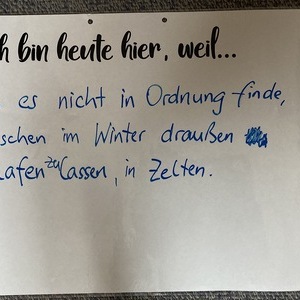 h bin heute hier, weil...
es nicht in Ordnung finde,
schen im Winter draußen
lafen zu lassen, in Zelten.